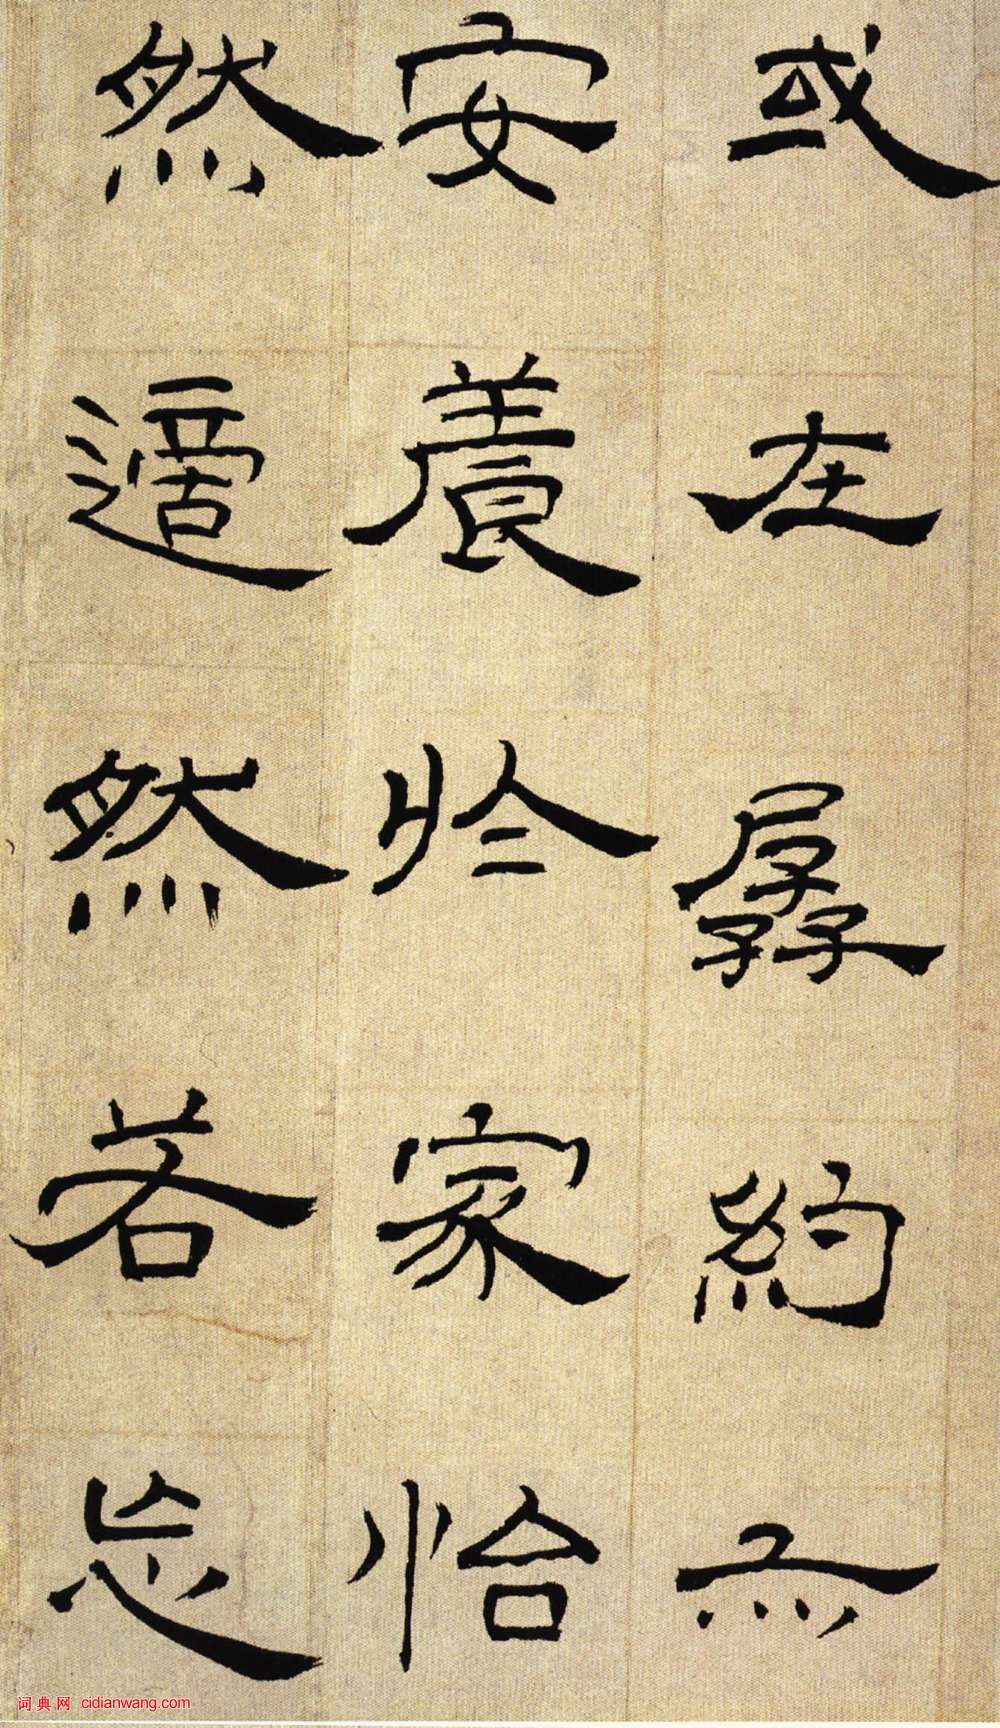 或在孱約亦
安養於家恰
然適然若忘
词典网 cidianwang.com